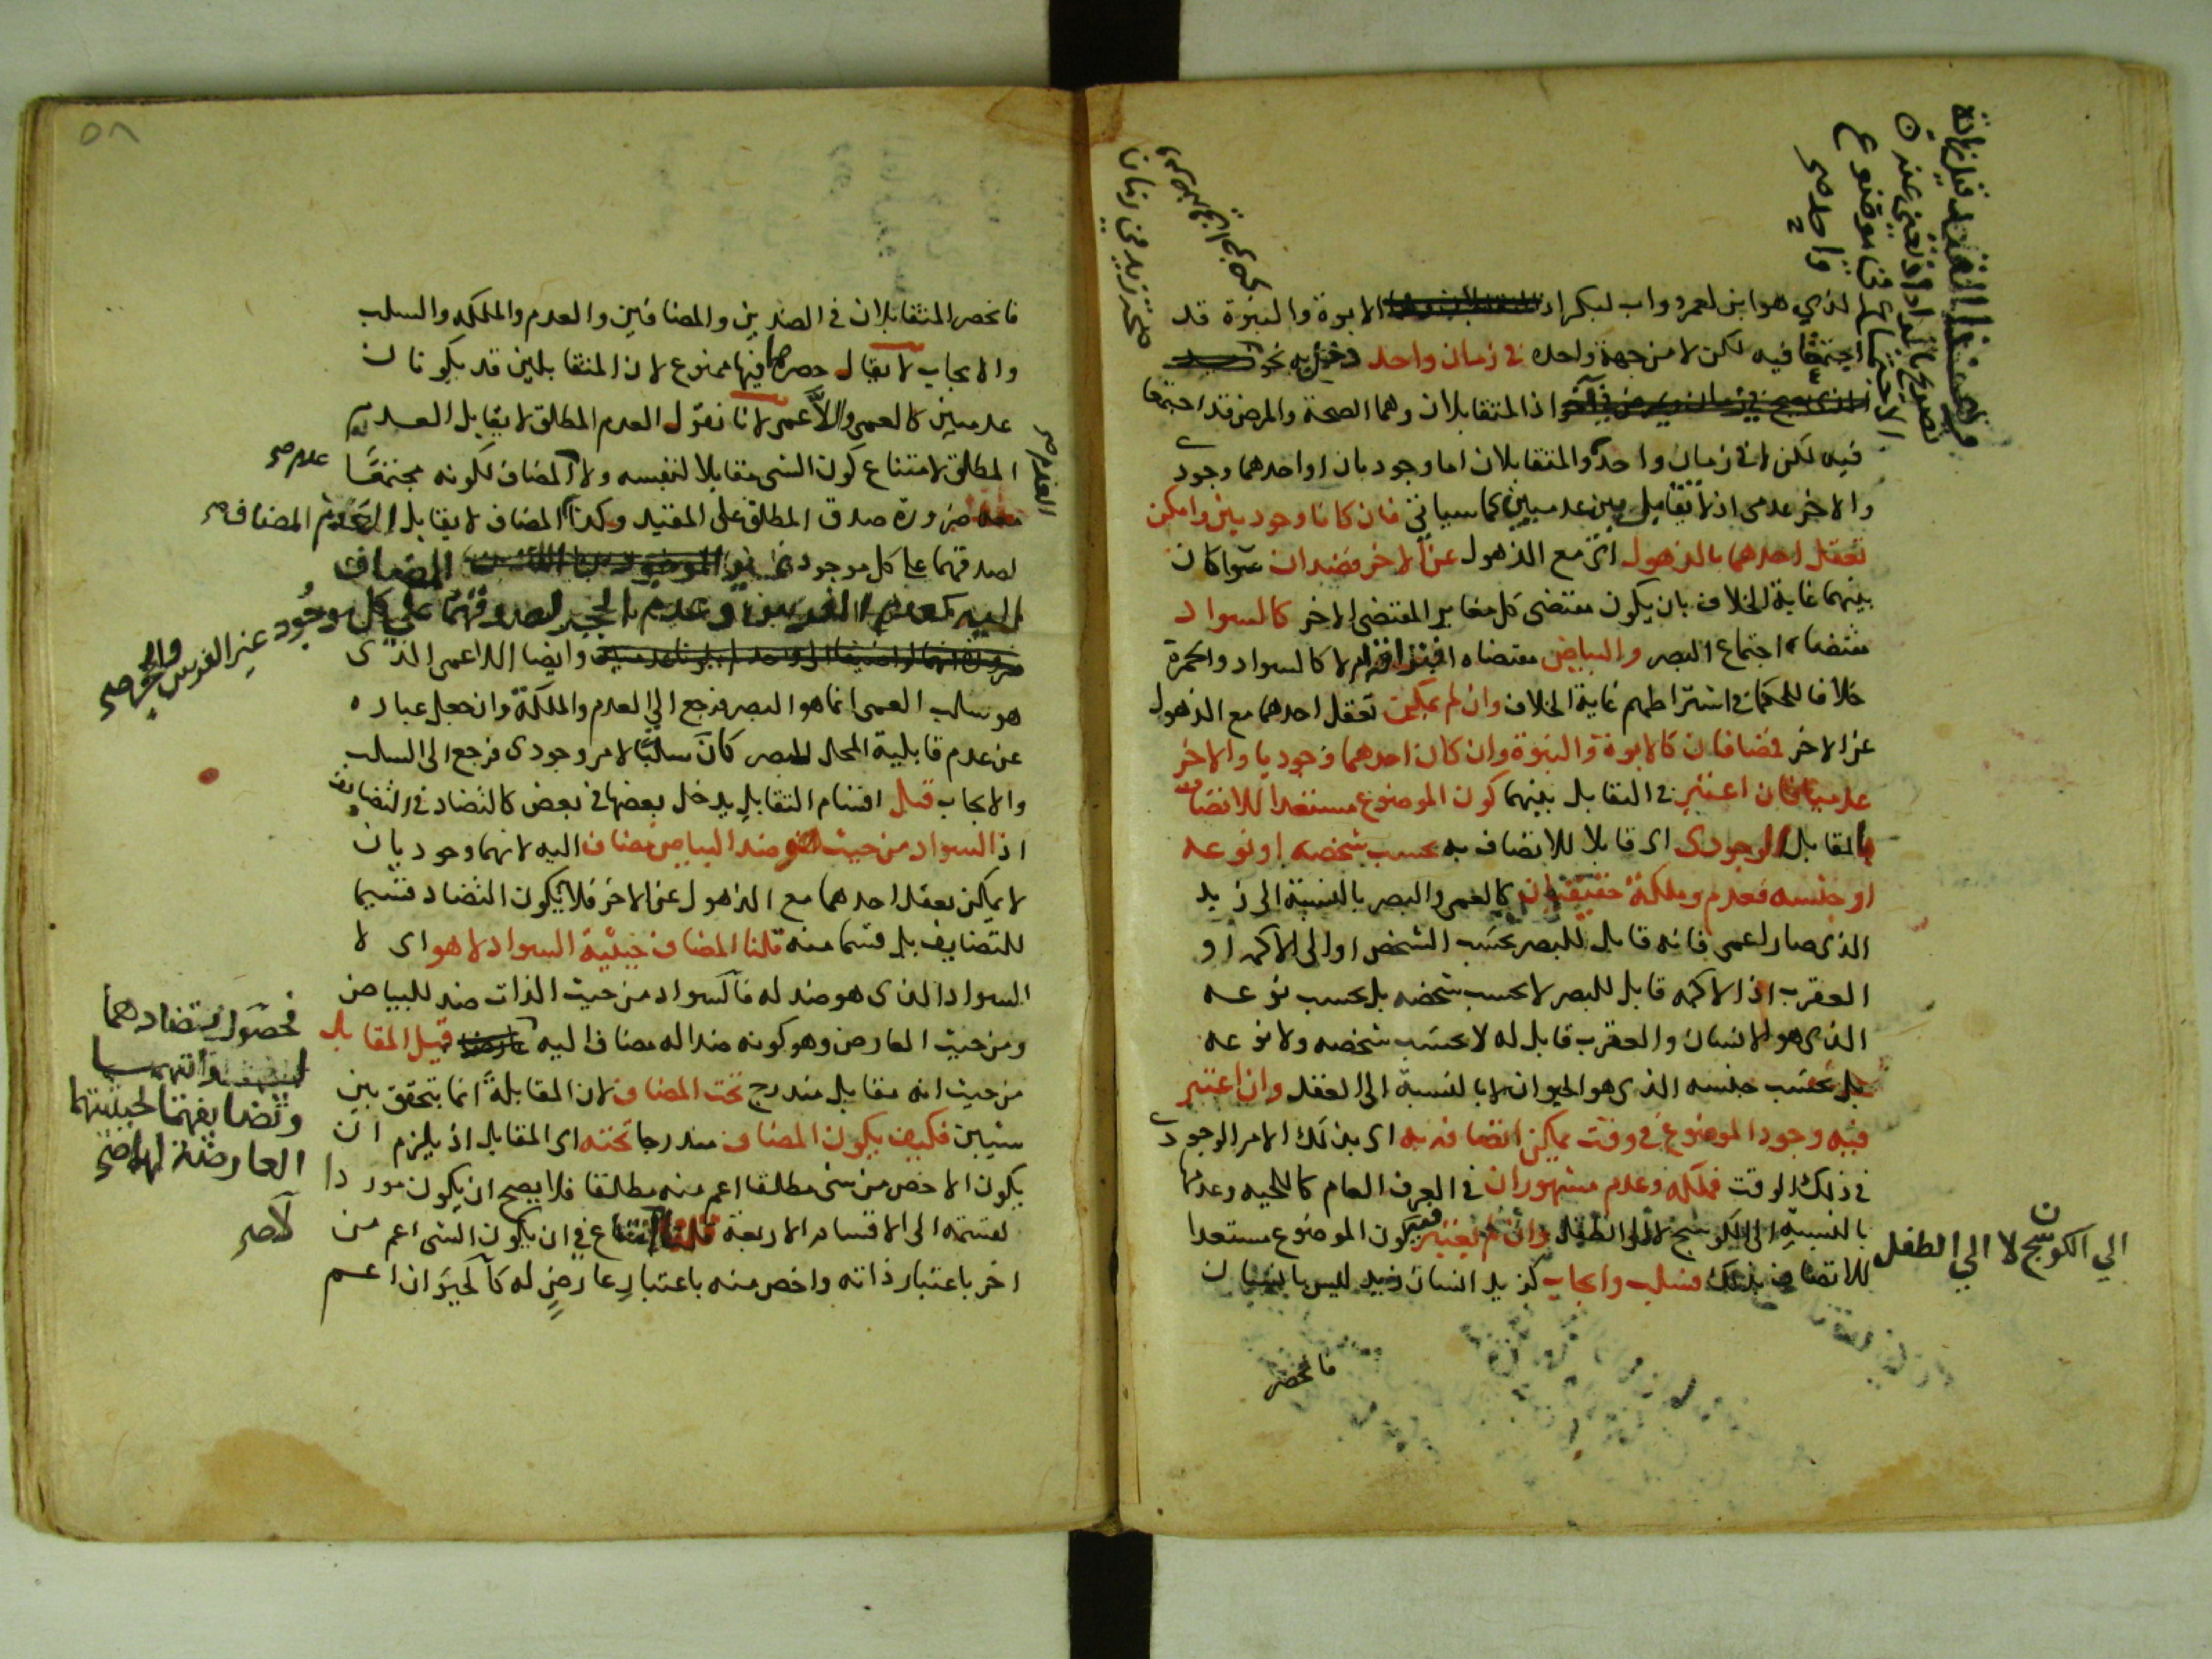 الذي هو ابن لعمرو واب لبكر اذ الابوة والبنوة قد
اجتمعتا فيه لكن لا من جهة واحدة في زمان واحد دخل به نحو
اذ المتقابلان وهما الصحة والمرض قد اجتمعا
فيه لكن لا في زمان واحد والمتقابلان اما وجوديان او احدهما وجودي
والاخر عدمي اذ لا تقابل بين عدميين كما سياتي فان كانا وجوديين وامكن
تعقل احدهما بالذهول اي مع الذهول عن الاخر فضدان سوا كان
بينهما غاية الخلاف بان يكون مقتضى كل مغاير المقتضى الاخر كالسواد
مقتضاه اجتماع البصر والبياض مقتضاه افتراقه ام لا كالسواد والحمرة
خلافا للحكما في اشتراطهم غاية الخلاف وان لم يمكن تعقل احدهما مع الذهول
عن الاخر فمضافان كالابوة والبنوة وان كان احدهما وجوديا والاخر
عدميا فان اعتبر في التقابل بينهما كون الموضوع مستعدا للاتصاف
بالمقابل الوجودي اي قابلا للاتصاف به بحسب شخصه او نوعه
او جنسه فعدم وملكة حقيقيان كالعمى والبصر بالنسبة الى زيد
الذي صار اعمى فانه قابل للبصر بحسب الشخص او الى الاكمه او
العقرب اذ الاكمه قابل للبصر لا بحسب شخصه بل بحسب نوعه
الذي هو الانسان والعقرب قابل له لا بحسب شخصه ولا نوعه
بل بحسب جنسه الذي هو الحيوان لا بالنسبة الى العقل وان اعتبر
فيه وجود الموضوع في وقت يمكن اتصافه به اي بذلك الامر الوجودي
في ذلك الوقت فملكه وعدم مشهوران في العرف العام كاللحيه وعدمها
بالنسبة الى الكوسج لا الى الطفل وان لم يعتبر فيه كون الموضوع مستعدا
للاتصاف بذلك فسلب وايجاب كزيد انسان زيد ليس بانسان
الي الكوسج لا الي الطفل
فانحصر
فانحصر المتقابلان في الضدين والمضافين والعدم والملكه والسلب
والايجاب لا يقال حصرهما فيها ممنوع لان المتقابلين قد يكونان
عدميين كالعمى واللاعمى لانا نقول العدم المطلق لا يقابل العدم
المطلق لامتناع كون الشي مقابلا لنفسه ولا المضاف لكونه مجتمعا
معه ضرورة صدق المطلق على المقيد وكذا المضاف لا يقابل العدم المضاف صح
لصدقهما على كل موجود المضاف
اليه كعدم الفرس وعدم الحجر لصدقهما على كل موجود غير الفرس والحجر صح
وايضا اللاعمى الذي
هو سلب العمى انما هو البصر فرجع الى العدم والملكة وان جعل عباره
عن عدم قابلية المحال للبصر كان سلبا لامر وجودي فرجع الى السلب
والايجاب قيل اقسام التقابل يدخل بعضها في بعض كالتضاد في التضايف
اذ السواد من حيث هو ضد البياض مضاف اليه لانهما وجوديان
لا يمكن تعقل احدهما مع الذهول عن الاخر فلا يكون التضاد قسيما
للتضايف بل قسما منه قلنا المضاف حيثية السواد لا هو اي لا
السواد الذي هو ضد له فالسواد من حيث الذات ضد للبياض
ومن حيث العارض وهو كونه ضدا له مضاف اليه قيل المقابل
من حيث انه مقابل مندرج تحت المضاف لان المقابلة انما تتحقق بين
شيئين فكيف يكون المضاف مندرجا تحته اي المقابل اذ يلزم ان
يكون الاخص من شي مطلقا اعم منه مطلقا فلا يصح ان يكون موردا
لقسمته الى الاقسام الاربعة قلنا لا امتناع في ان يكون الشي اعم من
اخر باعتبار ذاته واخص منه باعتبار عارض له كالحيوان اعم
العدم صح
عدم صح
فحصول تضادهما
وتضايفهما لحيثيتهما
العارضة لهما صح